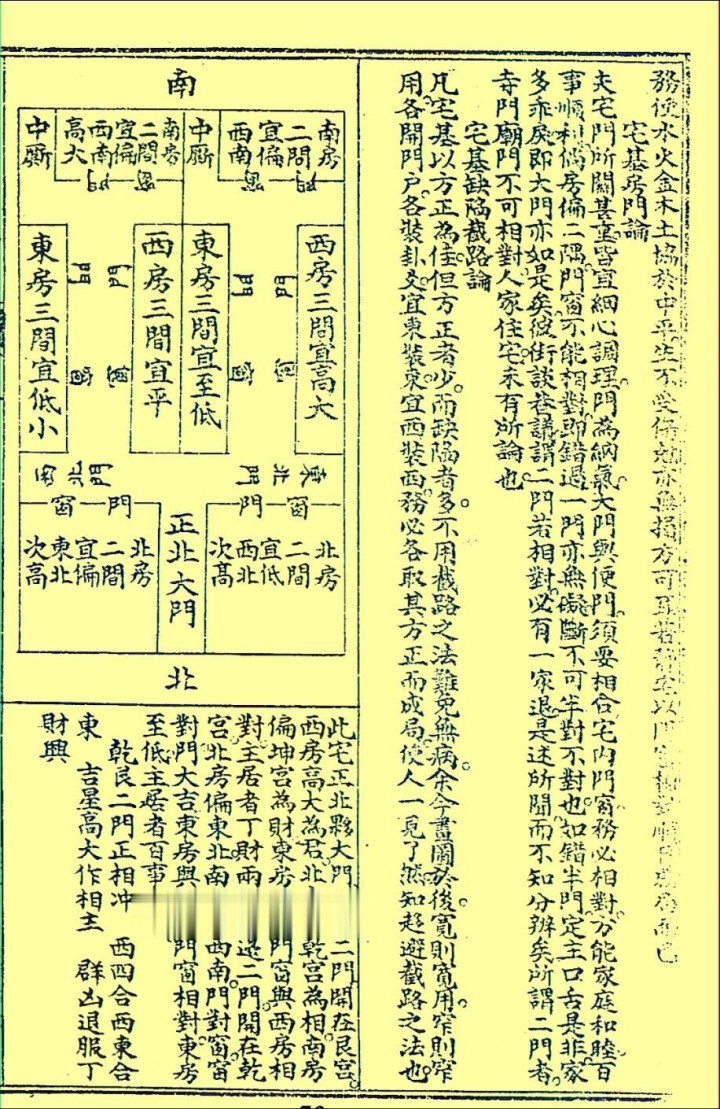 務使水火金木土協於中平生不受傷剋亦無損方可
宅基房門論
夫宅門所關甚重皆宜細心調理門為納氣大門與便門須要相合宅內門窗務必相對方能家庭和睦百
事順利倘房偏二隅門窗不能相對即錯過一門亦無礙斷不可半對不對也如錯半門定主口舌是非家
多乖戾即大門亦如是矣彼街談巷議謂二門若相對必有一家退是述所聞而不知分辨矣所謂二門者
寺門廟門不可相對人家住宅未有所論也
宅基缺陷截路論
凡宅基以方正為佳但方正者少而缺陷者多不用截路之法難免無病余今畫圖於後寬則寬用窄則窄
用各開門戶各裝卦爻宜東裝東宜西裝西務必各取其方正而成局使人一見了然知趨避截路之法也
南
南房
二間
宜偏
西南
中廠
南房
二間
宜偏
西南
高大
中廠
西房三間宜高大
東房三間宜至低
西房三間宜平
東房三間宜低小
門
窗
門
窗
北房
二間
宜低
西北
次高
正北大門
北房
二間
宜偏
東北
次高
北
此宅正北夥大門
二門開在艮宮
西房高大為君北
乾宮為相南房
偏坤宮為財東房
門窗與西房相
對主居者丁財兩
二門開在乾
宮北房偏東北南
西南門對窗窗
對門大吉東房與
門窗相對東房
至低主居者百事
乾艮二門正相冲
西四合西東合
東
吉星高大作相主
群凶退服丁
財興